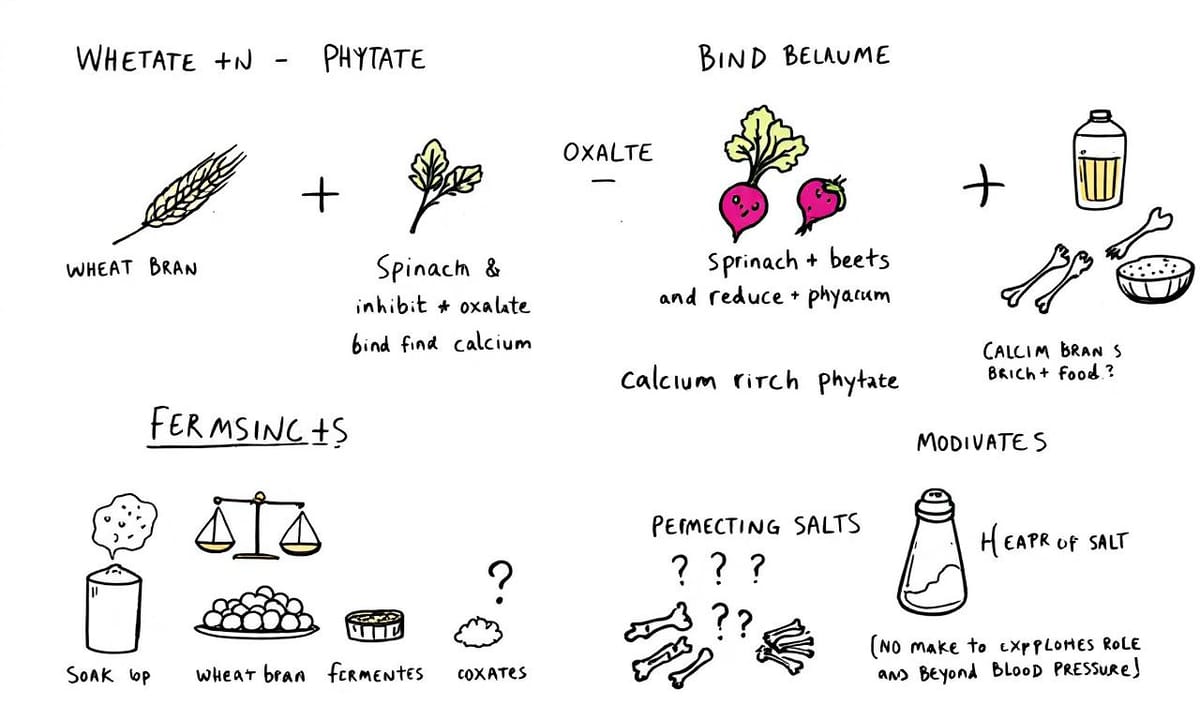 WHETATE +N - PHYTATE
BIND BELAUME
OXALTE
+
+
WHEAT BRAN
Spinach &
inhibit + oxalate
bind find calcium
Sprinach + beets
and reduce + phyacum
CALCIM BRAN S
BRICH+ Food.?
Calcium ritch phytate
FERMSINC +S
MODIVATES
PERMECTING SALTS
? ? ?
??
HEAPR OF SALT
?
SOAK UP
WHEAT BRAN
FERMENTES
COXATES
(NO MAKE to EXPPLOMES ROLE
AND BEYOND BLOOD PRESSURE)